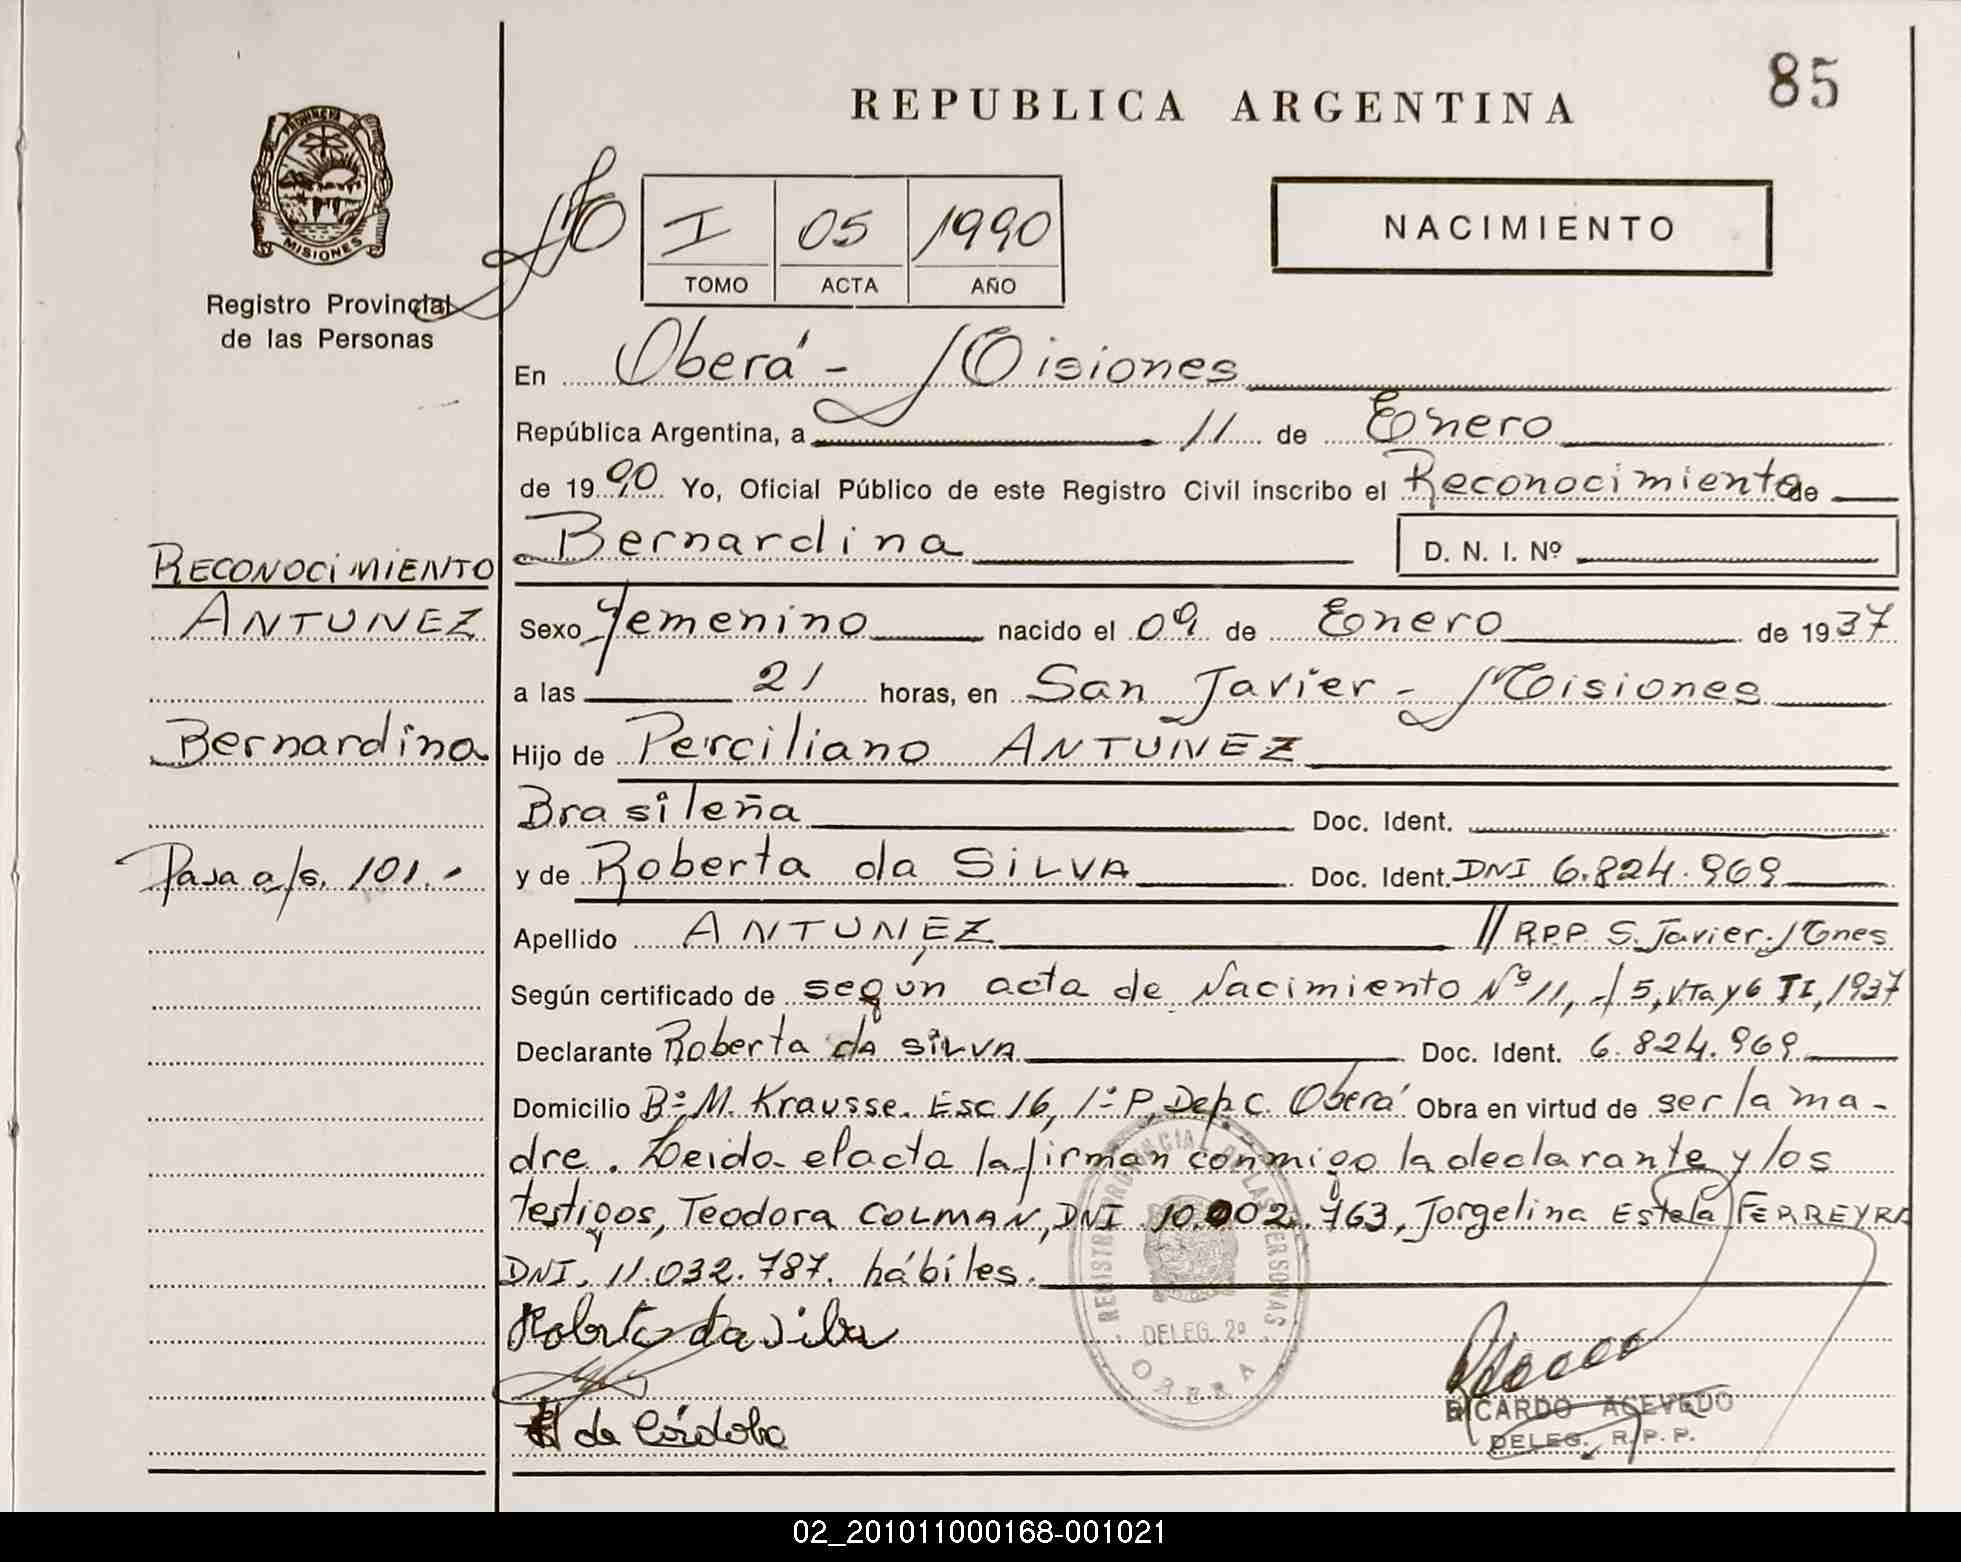 85
REPUBLICA ARGENTINA
PROVINCIA DE
MISIONES
Registro Provincial
de las Personas
I 05 1990
TOMO ACTA AÑO
NACIMIENTO
En Oberá - Misiones
República Argentina, a 11 de Enero
de 1990 Yo, Oficial Público de este Registro Civil inscribo el Reconocimiento de
Bernardina D. N. I. Nº
RECONOCIMIENTO
ANTUNEZ
Bernardina
Pasa a fs. 101.-
Sexo Femenino nacido el 09 de Enero de 1937
a las 21 horas, en San Javier - Misiones
Hijo de Perciliano ANTUNEZ
Brasileña Doc. Ident.
y de Roberta da SILVA Doc. Ident. DNI 6.824.969
Apellido ANTUNEZ // R.P.P. S. Javier. Mnes
Según certificado de según acta de Nacimiento Nº 11, f 5, vta y 6 T I, 1937
Declarante Roberta da SILVA Doc. Ident. 6.824.969
Domicilio Bº M. Krausse. Esc 16, 1º P, Dep. C. Oberá Obra en virtud de ser la ma-
dre. Leida el acta la firman conmigo la declarante y los
testigos, Teodora COLMAN, DNI 10.002.763, Jorgelina Estela FERREYRA
DNI. 11.032.787. hábiles.
Roberta da Silva
de Córdoba
REGISTRO PROVINCIAL DE LAS PERSONAS
DELEG. 2ª
OBERA
RICARDO ACEVEDO
DELEG. R. P. P.
02_201011000168-001021